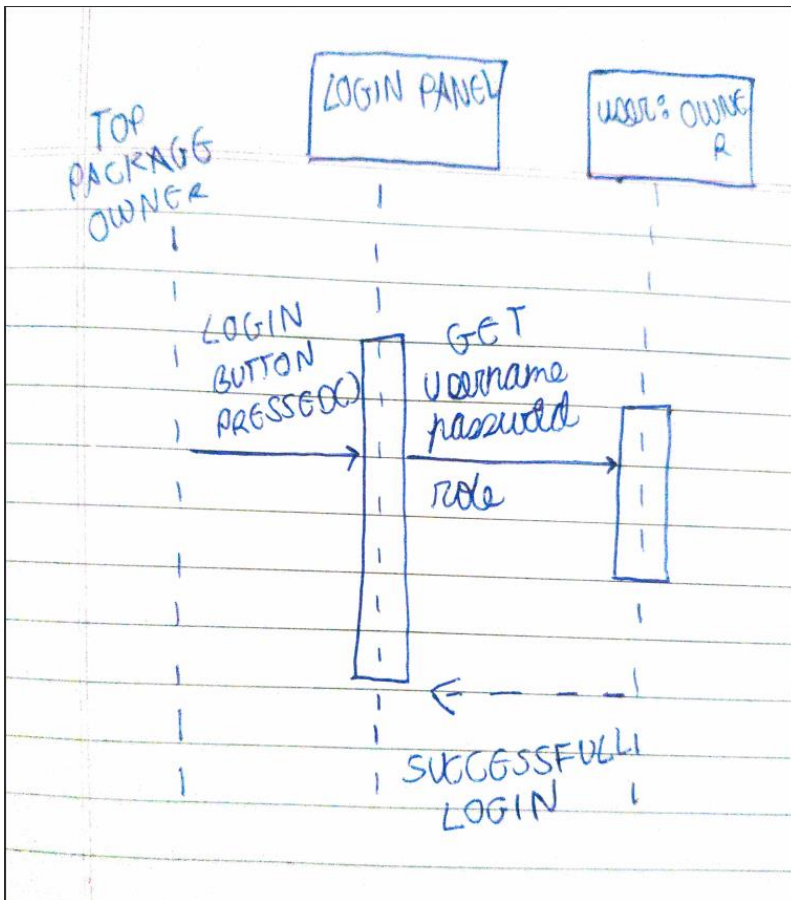 TOP
PACKAGE
OWNER
LOGIN PANEL
user: OWNE
R
LOGIN
BUTTON
PRESSED()
GET
username
password
role
SUCCESSFULL
LOGIN